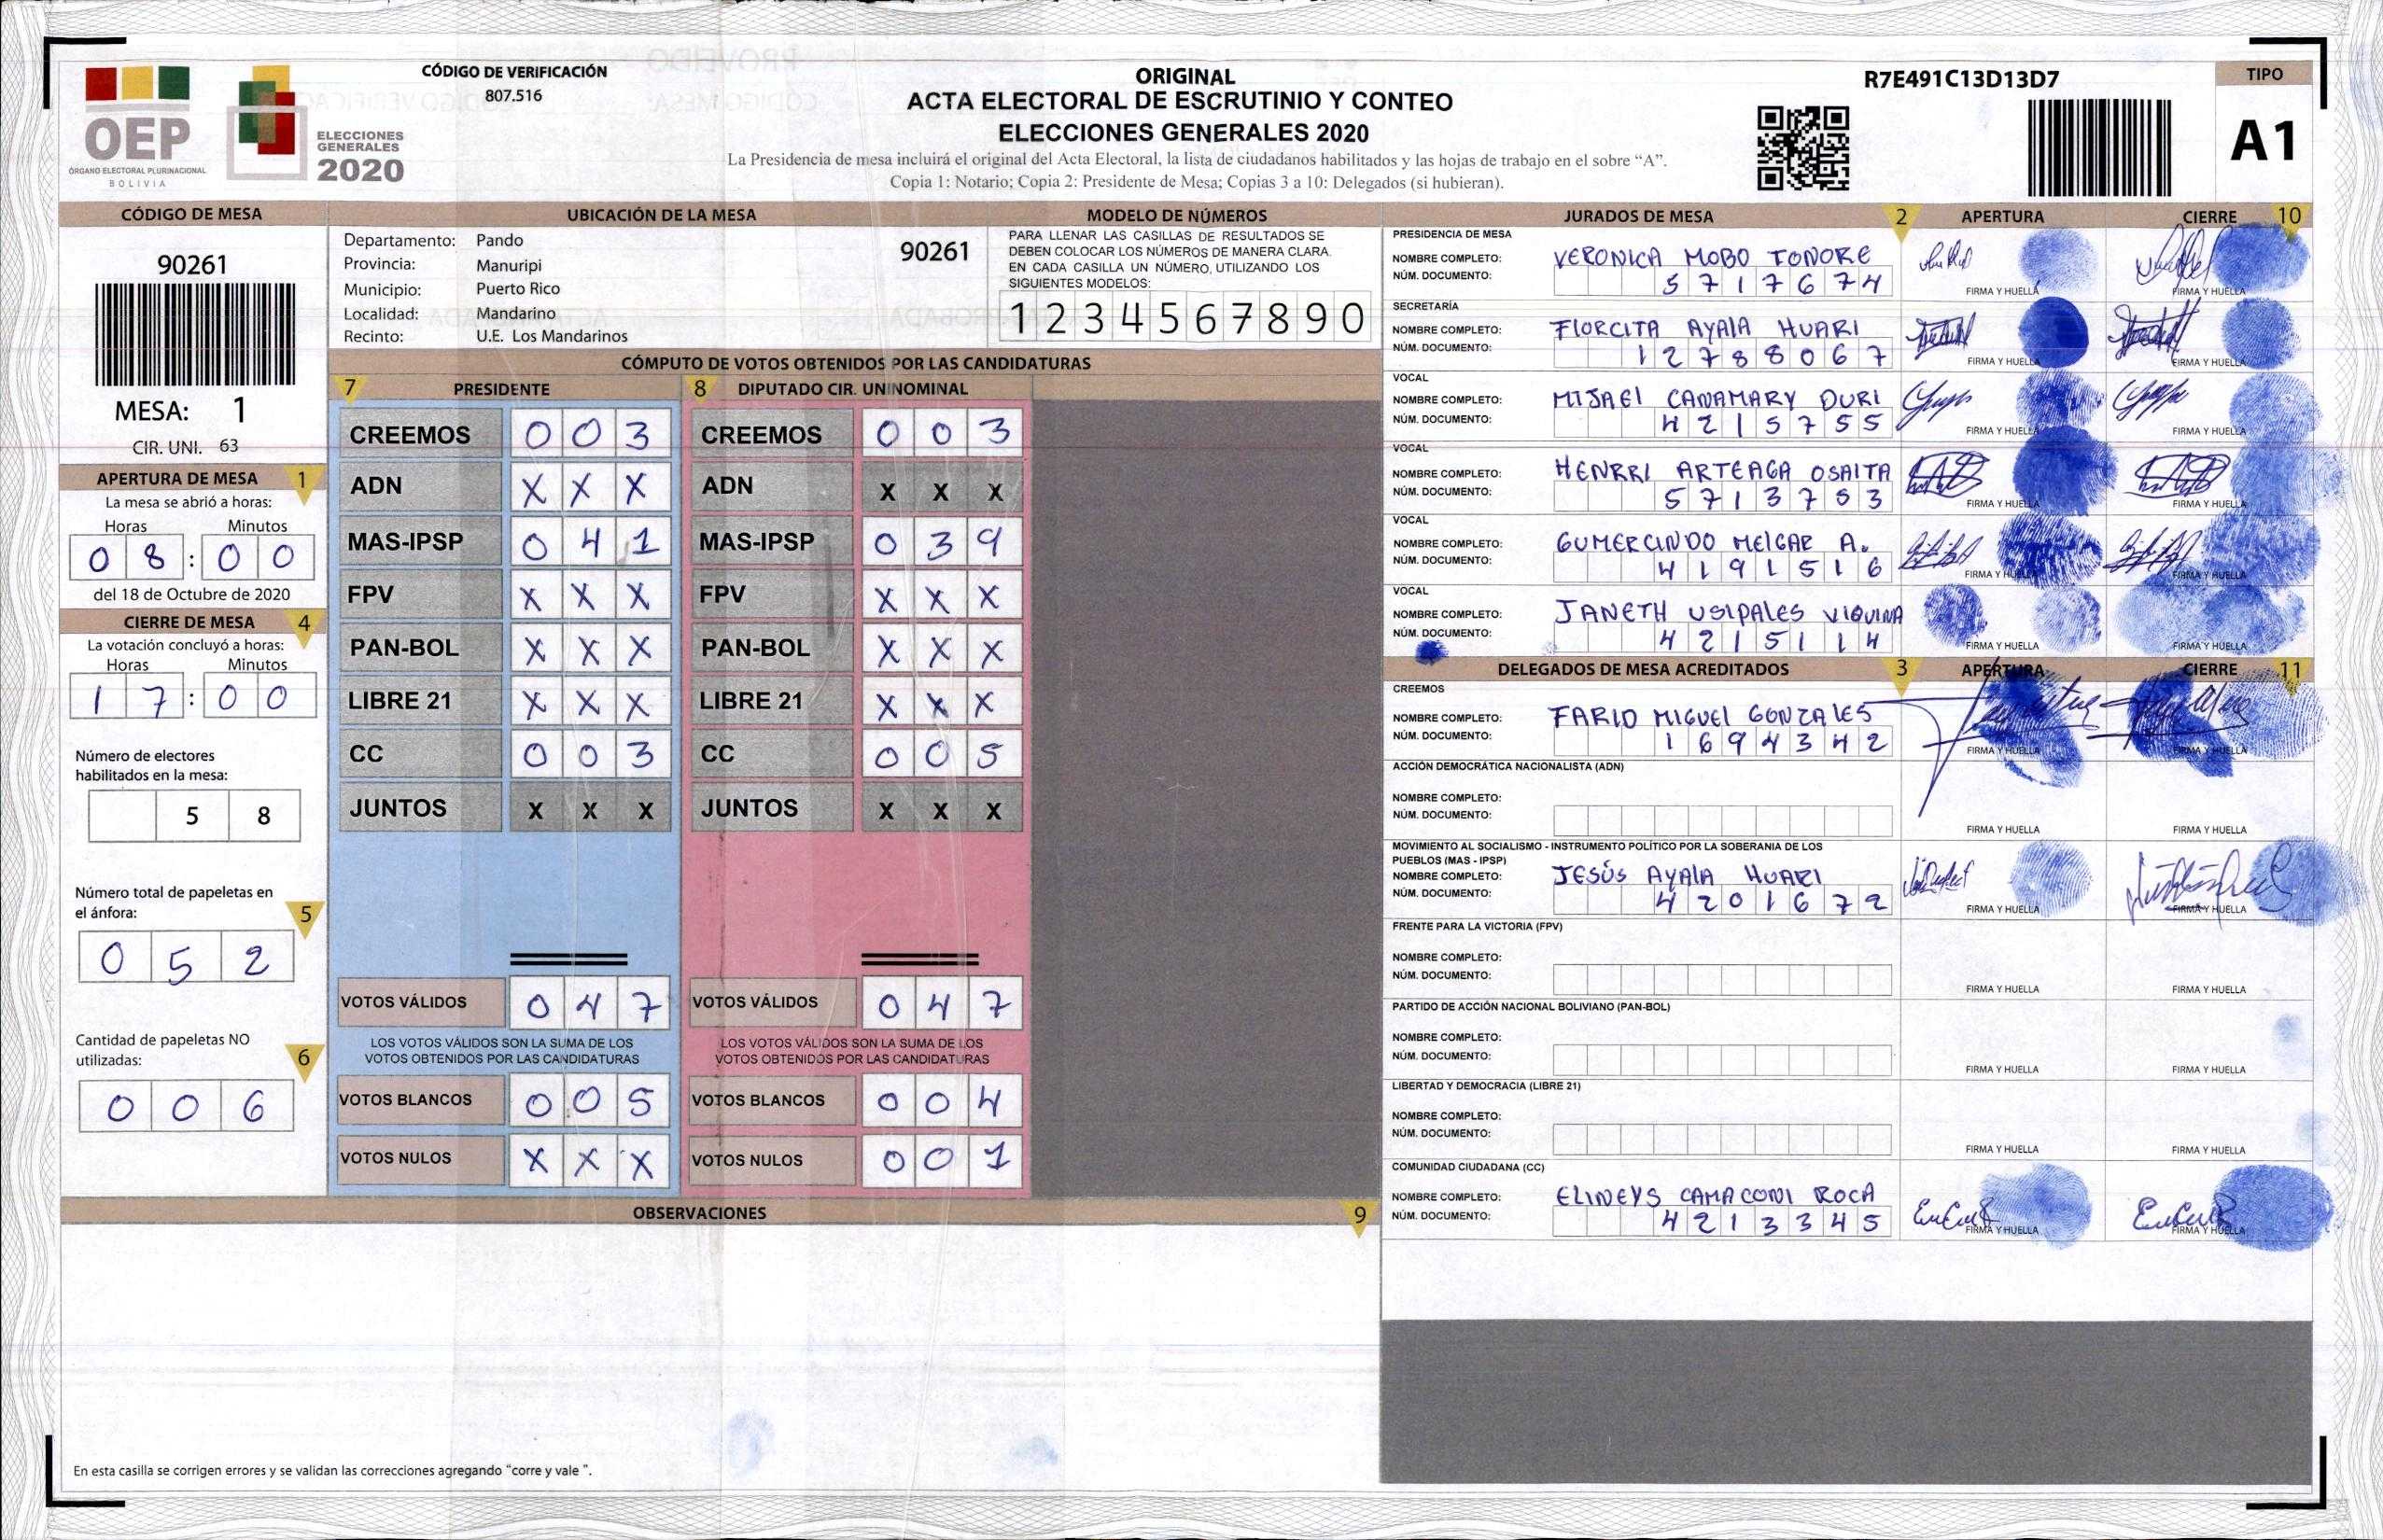 CÓDIGO DE VERIFICACIÓN
807.516
OEP
ÓRGANO ELECTORAL PLURINACIONAL
BOLIVIA
ELECCIONES
GENERALES
2020
ORIGINAL
ACTA ELECTORAL DE ESCRUTINIO Y CONTEO
ELECCIONES GENERALES 2020
La Presidencia de mesa incluirá el original del Acta Electoral, la lista de ciudadanos habilitados y las hojas de trabajo en el sobre “A”.
Copia 1: Notario; Copia 2: Presidente de Mesa; Copias 3 a 10: Delegados (si hubieran).
R7E491C13D13D7
TIPO
A1
CÓDIGO DE MESA
90261
MESA: 1
CIR. UNI. 63
APERTURA DE MESA 1
La mesa se abrió a horas:
Horas Minutos
0 8 : 0 0
del 18 de Octubre de 2020
CIERRE DE MESA 4
La votación concluyó a horas:
Horas Minutos
1 7 : 0 0
Número de electores
habilitados en la mesa:
5 8
Número total de papeletas en
el ánfora: 5
0 5 2
Cantidad de papeletas NO
utilizadas: 6
0 0 6
UBICACIÓN DE LA MESA
Departamento: Pando
90261
Provincia: Manuripi
Municipio: Puerto Rico
Localidad: Mandarino
Recinto: U.E. Los Mandarinos
MODELO DE NÚMEROS
PARA LLENAR LAS CASILLAS DE RESULTADOS SE
DEBEN COLOCAR LOS NÚMEROS DE MANERA CLARA.
EN CADA CASILLA UN NÚMERO, UTILIZANDO LOS
SIGUIENTES MODELOS:
1 2 3 4 5 6 7 8 9 0
CÓMPUTO DE VOTOS OBTENIDOS POR LAS CANDIDATURAS
7 PRESIDENTE 8 DIPUTADO CIR. UNINOMINAL
CREEMOS 0 0 3 CREEMOS 0 0 3
ADN X X X ADN X X X
MAS-IPSP 0 4 1 MAS-IPSP 0 3 9
FPV X X X FPV X X X
PAN-BOL X X X PAN-BOL X X X
LIBRE 21 X X X LIBRE 21 X X X
CC 0 0 3 CC 0 0 5
JUNTOS X X X JUNTOS X X X
VOTOS VÁLIDOS 0 4 7 VOTOS VÁLIDOS 0 4 7
LOS VOTOS VÁLIDOS SON LA SUMA DE LOS LOS VOTOS VÁLIDOS SON LA SUMA DE LOS
VOTOS OBTENIDOS POR LAS CANDIDATURAS VOTOS OBTENIDOS POR LAS CANDIDATURAS
VOTOS BLANCOS 0 0 5 VOTOS BLANCOS 0 0 4
VOTOS NULOS X X X VOTOS NULOS 0 0 1
OBSERVACIONES 9
En esta casilla se corrigen errores y se validan las correcciones agregando “corre y vale ”.
JURADOS DE MESA 2 APERTURA CIERRE 10
PRESIDENCIA DE MESA
NOMBRE COMPLETO: VERONICA MOBO TONORE
NÚM. DOCUMENTO: 5 7 1 7 6 7 4
FIRMA Y HUELLA FIRMA Y HUELLA
SECRETARÍA
NOMBRE COMPLETO: FLORCITA AYALA HUARI
NÚM. DOCUMENTO: 1 2 7 8 8 0 6 7
FIRMA Y HUELLA FIRMA Y HUELLA
VOCAL
NOMBRE COMPLETO: MIJAEL CANAMARY DURI
NÚM. DOCUMENTO: 4 2 1 5 7 5 5
FIRMA Y HUELLA FIRMA Y HUELLA
VOCAL
NOMBRE COMPLETO: HENRRI ARTEAGA OSAITA
NÚM. DOCUMENTO: 5 7 1 3 7 5 3
FIRMA Y HUELLA FIRMA Y HUELLA
VOCAL
NOMBRE COMPLETO: GUMERCINDO MELGAR A.
NÚM. DOCUMENTO: 4 1 9 1 5 1 6
FIRMA Y HUELLA FIRMA Y HUELLA
VOCAL
NOMBRE COMPLETO: JANETH USIPALES VIQUINA
NÚM. DOCUMENTO: 4 2 1 5 1 1 4
FIRMA Y HUELLA FIRMA Y HUELLA
DELEGADOS DE MESA ACREDITADOS 3 APERTURA CIERRE 11
CREEMOS
NOMBRE COMPLETO: FARID MIGUEL GONZALES
NÚM. DOCUMENTO: 1 6 9 4 3 4 2
FIRMA Y HUELLA FIRMA Y HUELLA
ACCIÓN DEMOCRÁTICA NACIONALISTA (ADN)
NOMBRE COMPLETO:
NÚM. DOCUMENTO:
FIRMA Y HUELLA FIRMA Y HUELLA
MOVIMIENTO AL SOCIALISMO - INSTRUMENTO POLÍTICO POR LA SOBERANIA DE LOS
PUEBLOS (MAS - IPSP)
NOMBRE COMPLETO: JESÚS AYALA HUARI
NÚM. DOCUMENTO: 4 2 0 1 6 7 2
FIRMA Y HUELLA FIRMA Y HUELLA
FRENTE PARA LA VICTORIA (FPV)
NOMBRE COMPLETO:
NÚM. DOCUMENTO:
FIRMA Y HUELLA FIRMA Y HUELLA
PARTIDO DE ACCIÓN NACIONAL BOLIVIANO (PAN-BOL)
NOMBRE COMPLETO:
NÚM. DOCUMENTO:
FIRMA Y HUELLA FIRMA Y HUELLA
LIBERTAD Y DEMOCRACIA (LIBRE 21)
NOMBRE COMPLETO:
NÚM. DOCUMENTO:
FIRMA Y HUELLA FIRMA Y HUELLA
COMUNIDAD CIUDADANA (CC)
NOMBRE COMPLETO: ELINEYS CAMACONI ROCA
NÚM. DOCUMENTO: 4 2 1 3 3 4 5
FIRMA Y HUELLA FIRMA Y HUELLA